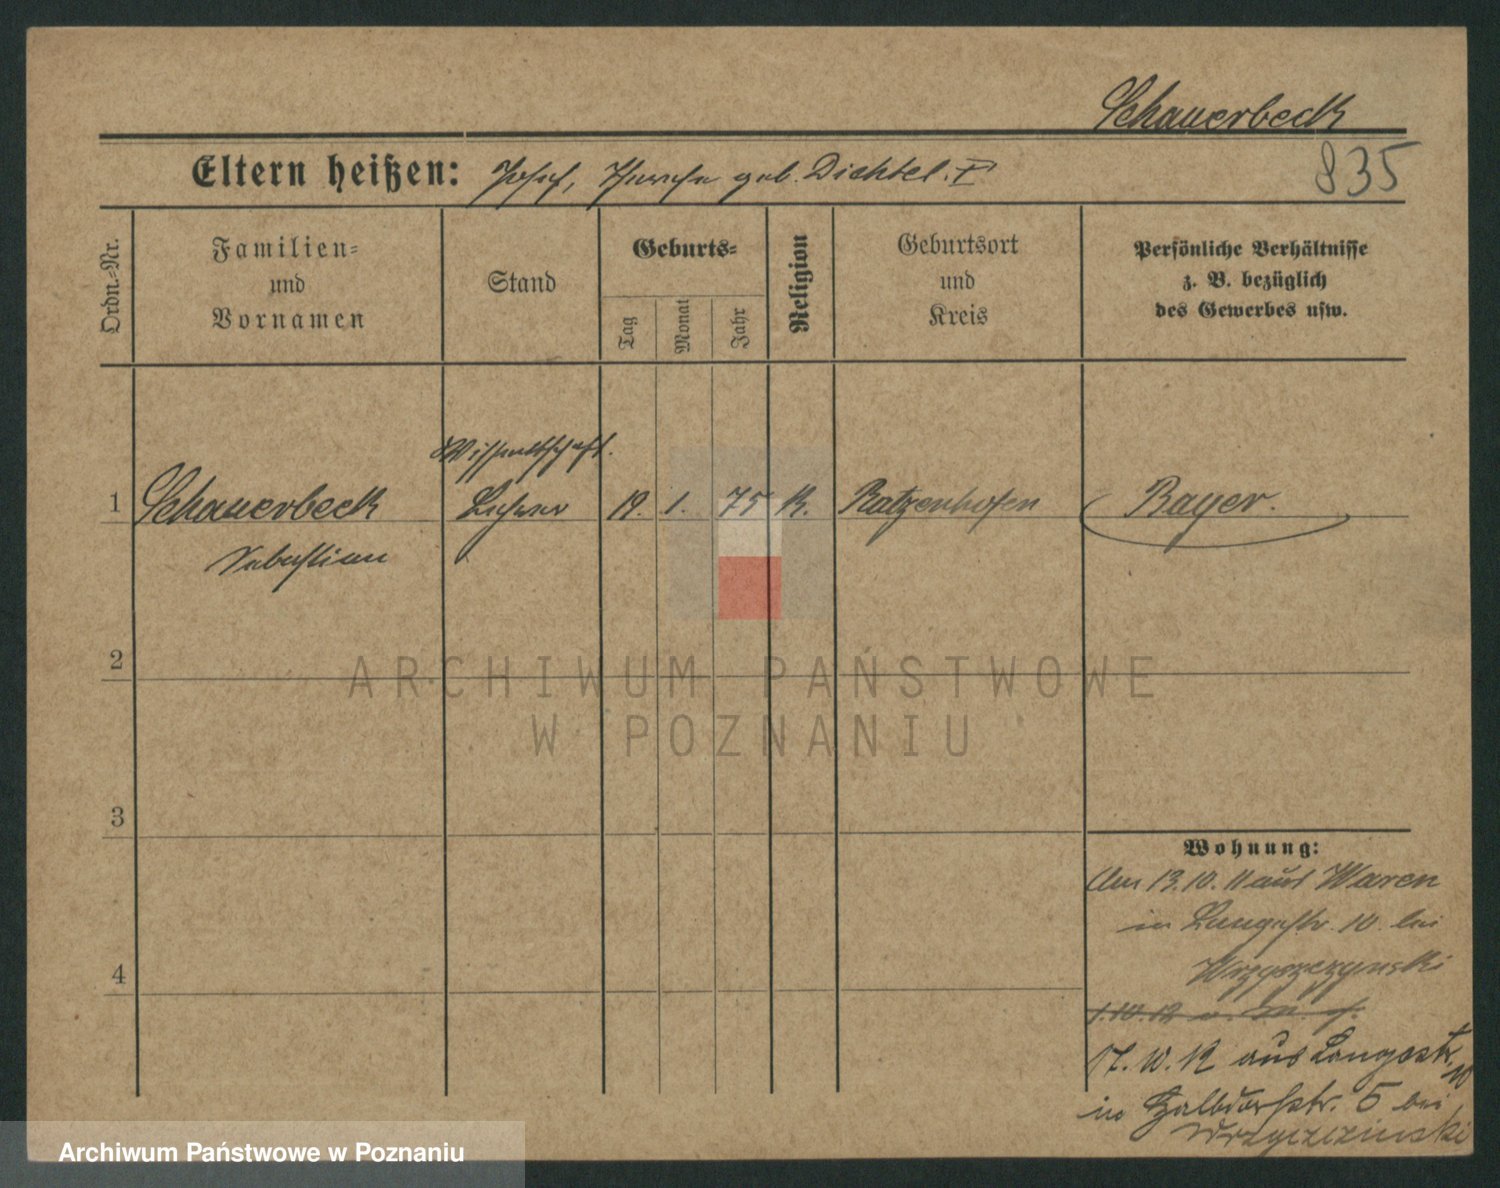 Schauerbeck
835
Eltern heißen: Josef, Therese geb. Dichtel. F
Ordn.-Nr.
Familien-
und
Vornamen
Stand
Geburts-
Tag
Monat
Jahr
Religion
Geburtsort
und
Kreis
Persönliche Verhältnisse
z. B. bezüglich
des Gewerbes usw.
Wissentschaft.
1 Schauerbeck Lehrer 19. 1. 75 K. Ratzenhofen Bayer.
Sebastian
2
ARCHIWUM PAŃSTWOWE
W POZNANIU
3
Wohnung:
Am 13.10.11 aus Waren
in Langestr. 10. bei
Wrzyszczynski
4
1.10.12
17.10.12 aus Langestr. 10
in Halbdorfstr. 5 bei
Wrzyszczinski
Archiwum Państwowe w Poznaniu